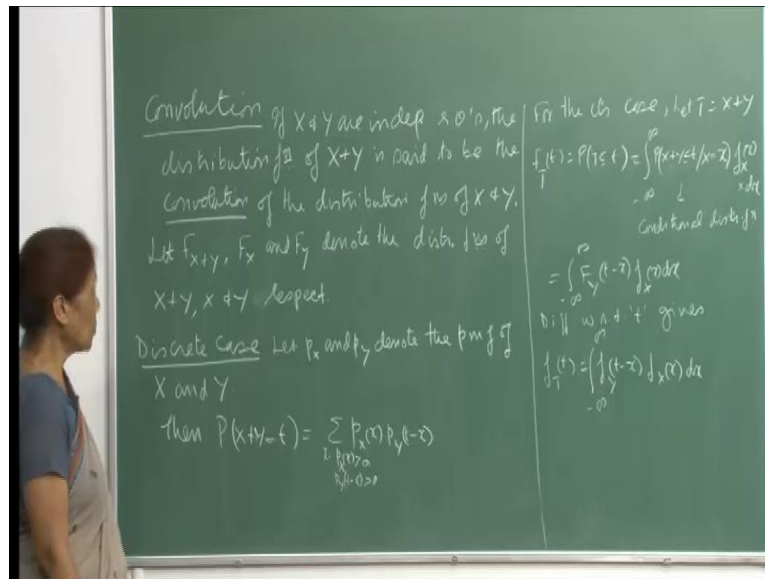 Convolution If X & Y are indep r.v's, the
distribution fn of X+Y is said to be the
convolution of the distribution fns of X & Y.
Let F_{X+Y}, F_X and F_Y denote the distr. fns of
X+Y, X & Y respect.
Discrete Case Let p_X and p_Y denote the pmf of
X and Y
Then P(X+Y=t) = ∑ p_X(x) p_Y(t-x)
x: p_X(x)>0
p_Y(t-x)>0
For the cts case, Let T = X+Y
F_T(t) = P(T≤t) = ∫_{-∞}^{∞} P(X+Y≤t/X=x) f_X(x) dx
↓
conditional distr. fn
= ∫_{-∞}^{∞} F_Y(t-x) f_X(x) dx
Diff w.r.t 't' gives
f_T(t) = ∫_{-∞}^{∞} f_Y(t-x) f_X(x) dx